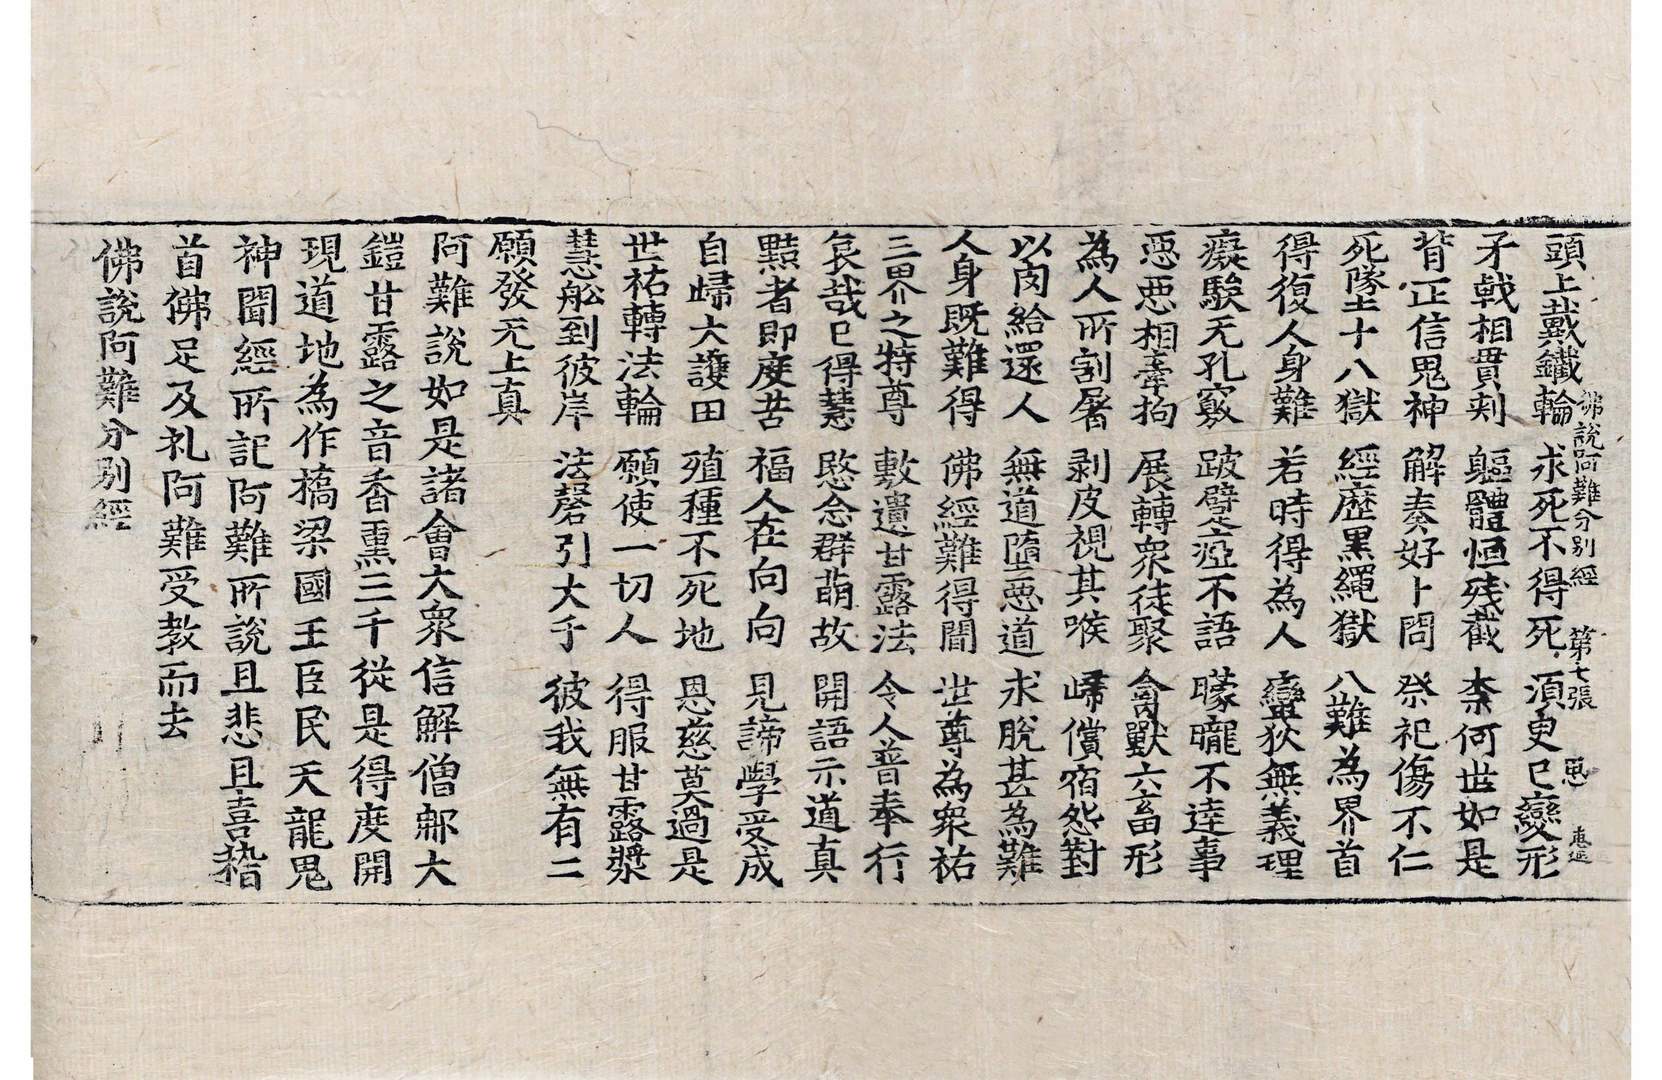 佛說阿難分別經 第七張 思
頭上戴鐵輪 求死不得死 湏臾已變形
矛戟相貫刾 軀體恒殘截 柰何世如是
背正信鬼神 解奏好卜問 祭祀傷不仁
死墜十八獄 經歷黑繩獄 八難為界首
得復人身難 若時得為人 蠻狄無義理
癡騃无孔竅 跛躄瘂不語 矇矓不達事
惡惡相牽拘 展轉衆徒聚 禽獸六畜形
為人所割屠 剥皮視其喉 歸償宿怨對
以肉給還人 無道墮惡道 求脫甚為難
人身既難得 佛經難得聞 世尊為衆祐
三界之特尊 敷遺甘露法 令人普奉行
哀哉已得慧 愍念群萌故 開語示道真
黠者即度苦 福人在向向 見諦學受成
自歸大護田 殖種不死地 恩慈莫過是
世祐轉法輪 願使一切人 得服甘露漿
慧舩到彼岸 法磬引大千 彼我無有二
願發无上真
阿難說如是諸會大衆信解僧那大
鎧甘露之音香熏三千從是得度開
現道地為作橋梁國王臣民天龍鬼
神聞經所記阿難所說且悲且喜稽
首佛足及礼阿難受教而去
佛說阿難分別經